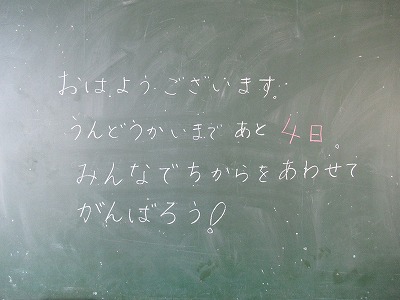 おはようございます。
うんどうかいまであと4日。
みんなでちからをあわせて
がんばろう!